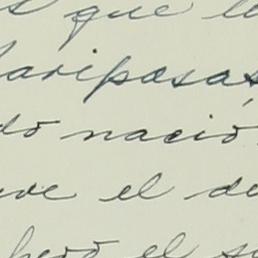 s que la
mariposas
do nació
ve el de
pero el su